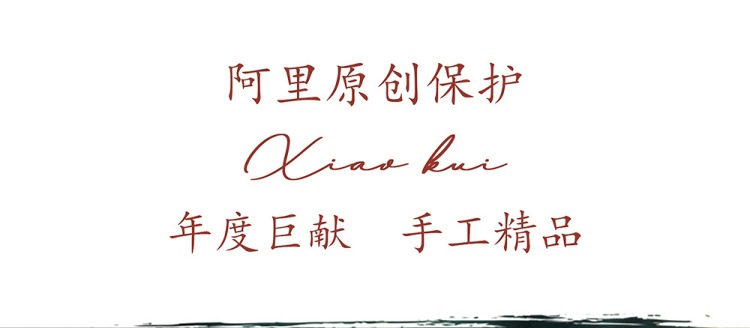 阿里原创保护
Xiao kui
年度巨献 手工精品